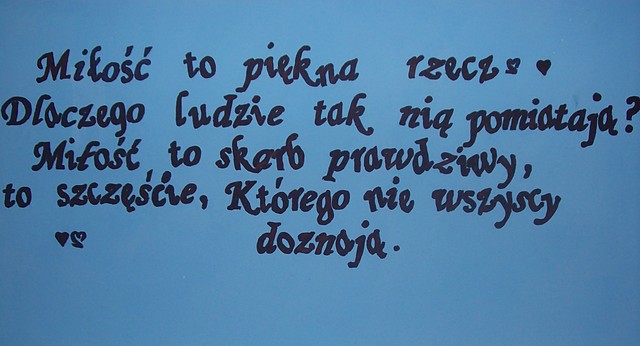 Miłość to piękna rzecz
Dlaczego ludzie tak nią pomiatają?
Miłość to skarb prawdziwy,
to szczęście, Którego nie wszyscy
doznają.